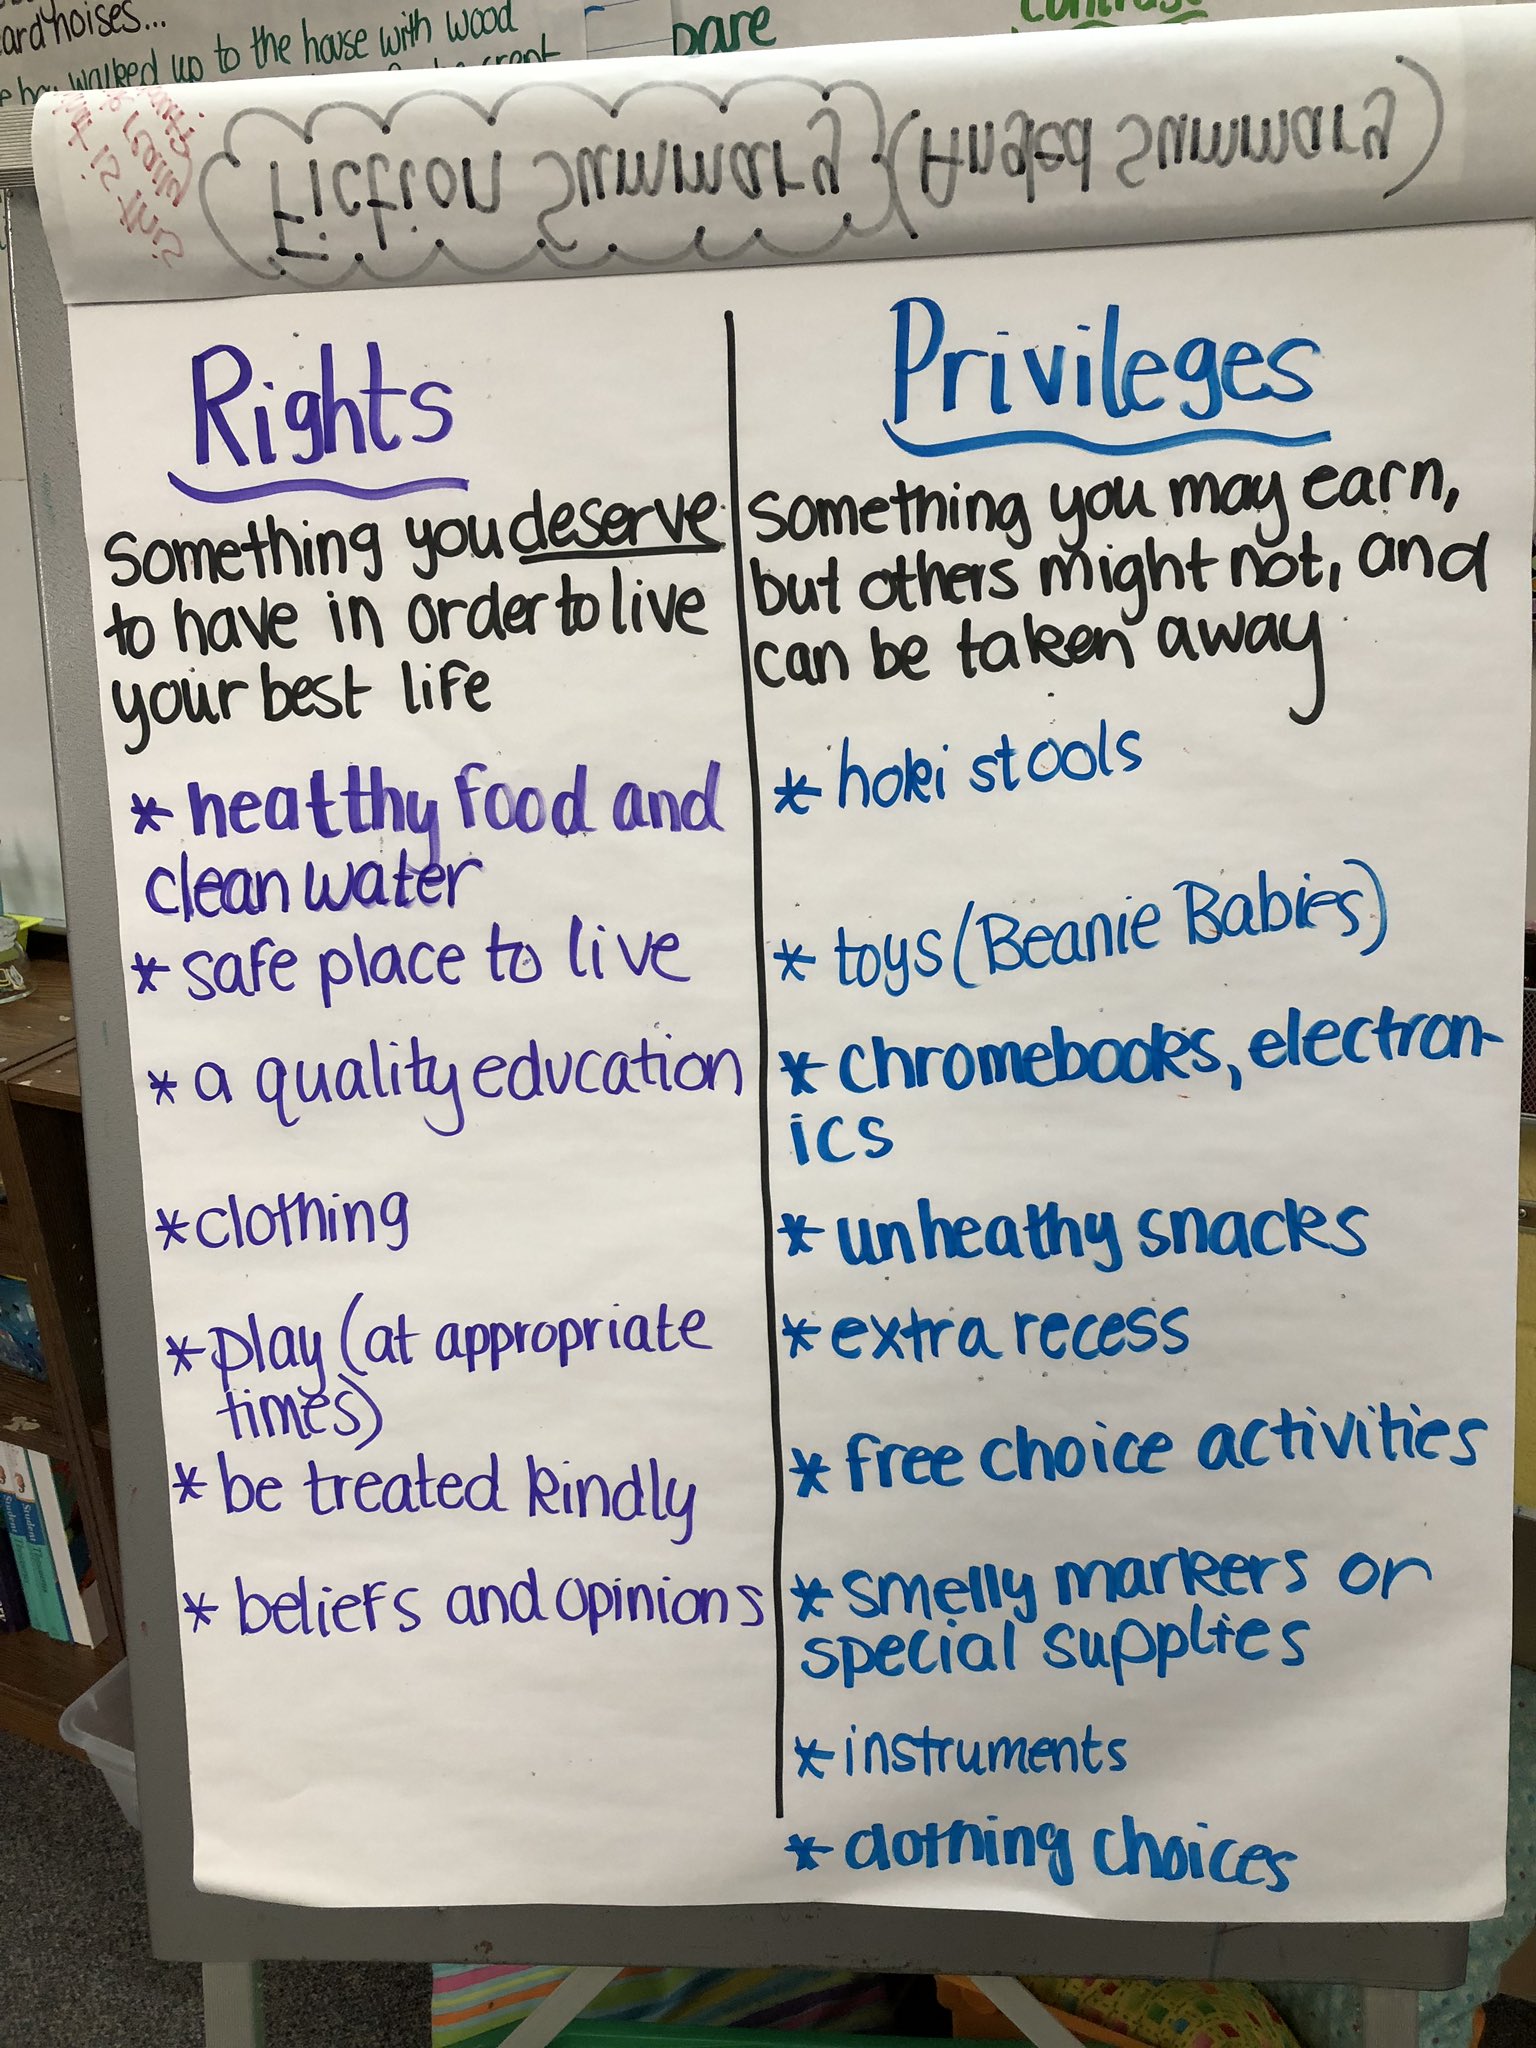 ard noises...
walked up to the house with wood
pare
contrast
Fiction Summary (Angled Summary)
Rights
Something you deserve
to have in order to live
your best life
* healthy food and
clean water
* safe place to live
* a quality education
* clothing
* play (at appropriate
times)
* be treated kindly
* beliefs and opinions
Privileges
Something you may earn,
but others might not, and
can be taken away
* hoki stools
* toys (Beanie Babies)
* chromebooks, electron-
ics
* unheathy snacks
* extra recess
* free choice activities
* smelly markers or
special supplies
* instruments
* clothing choices
Student